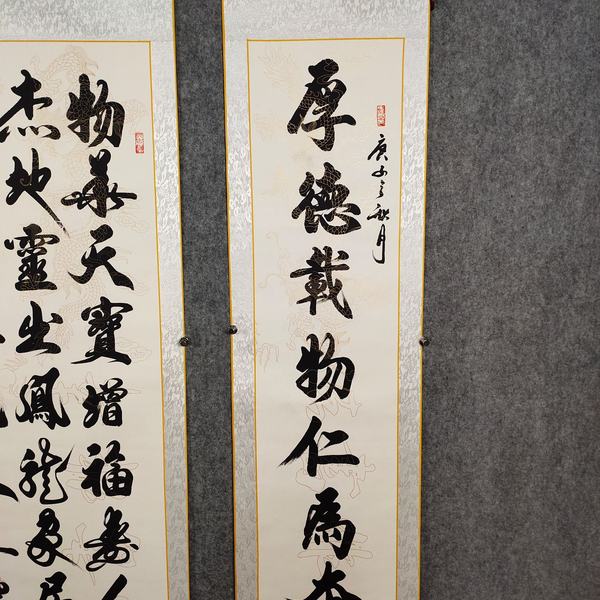 庚子之秋月
厚德載物仁為本
物華天寶增福壽人
杰地靈出鳳龍家居